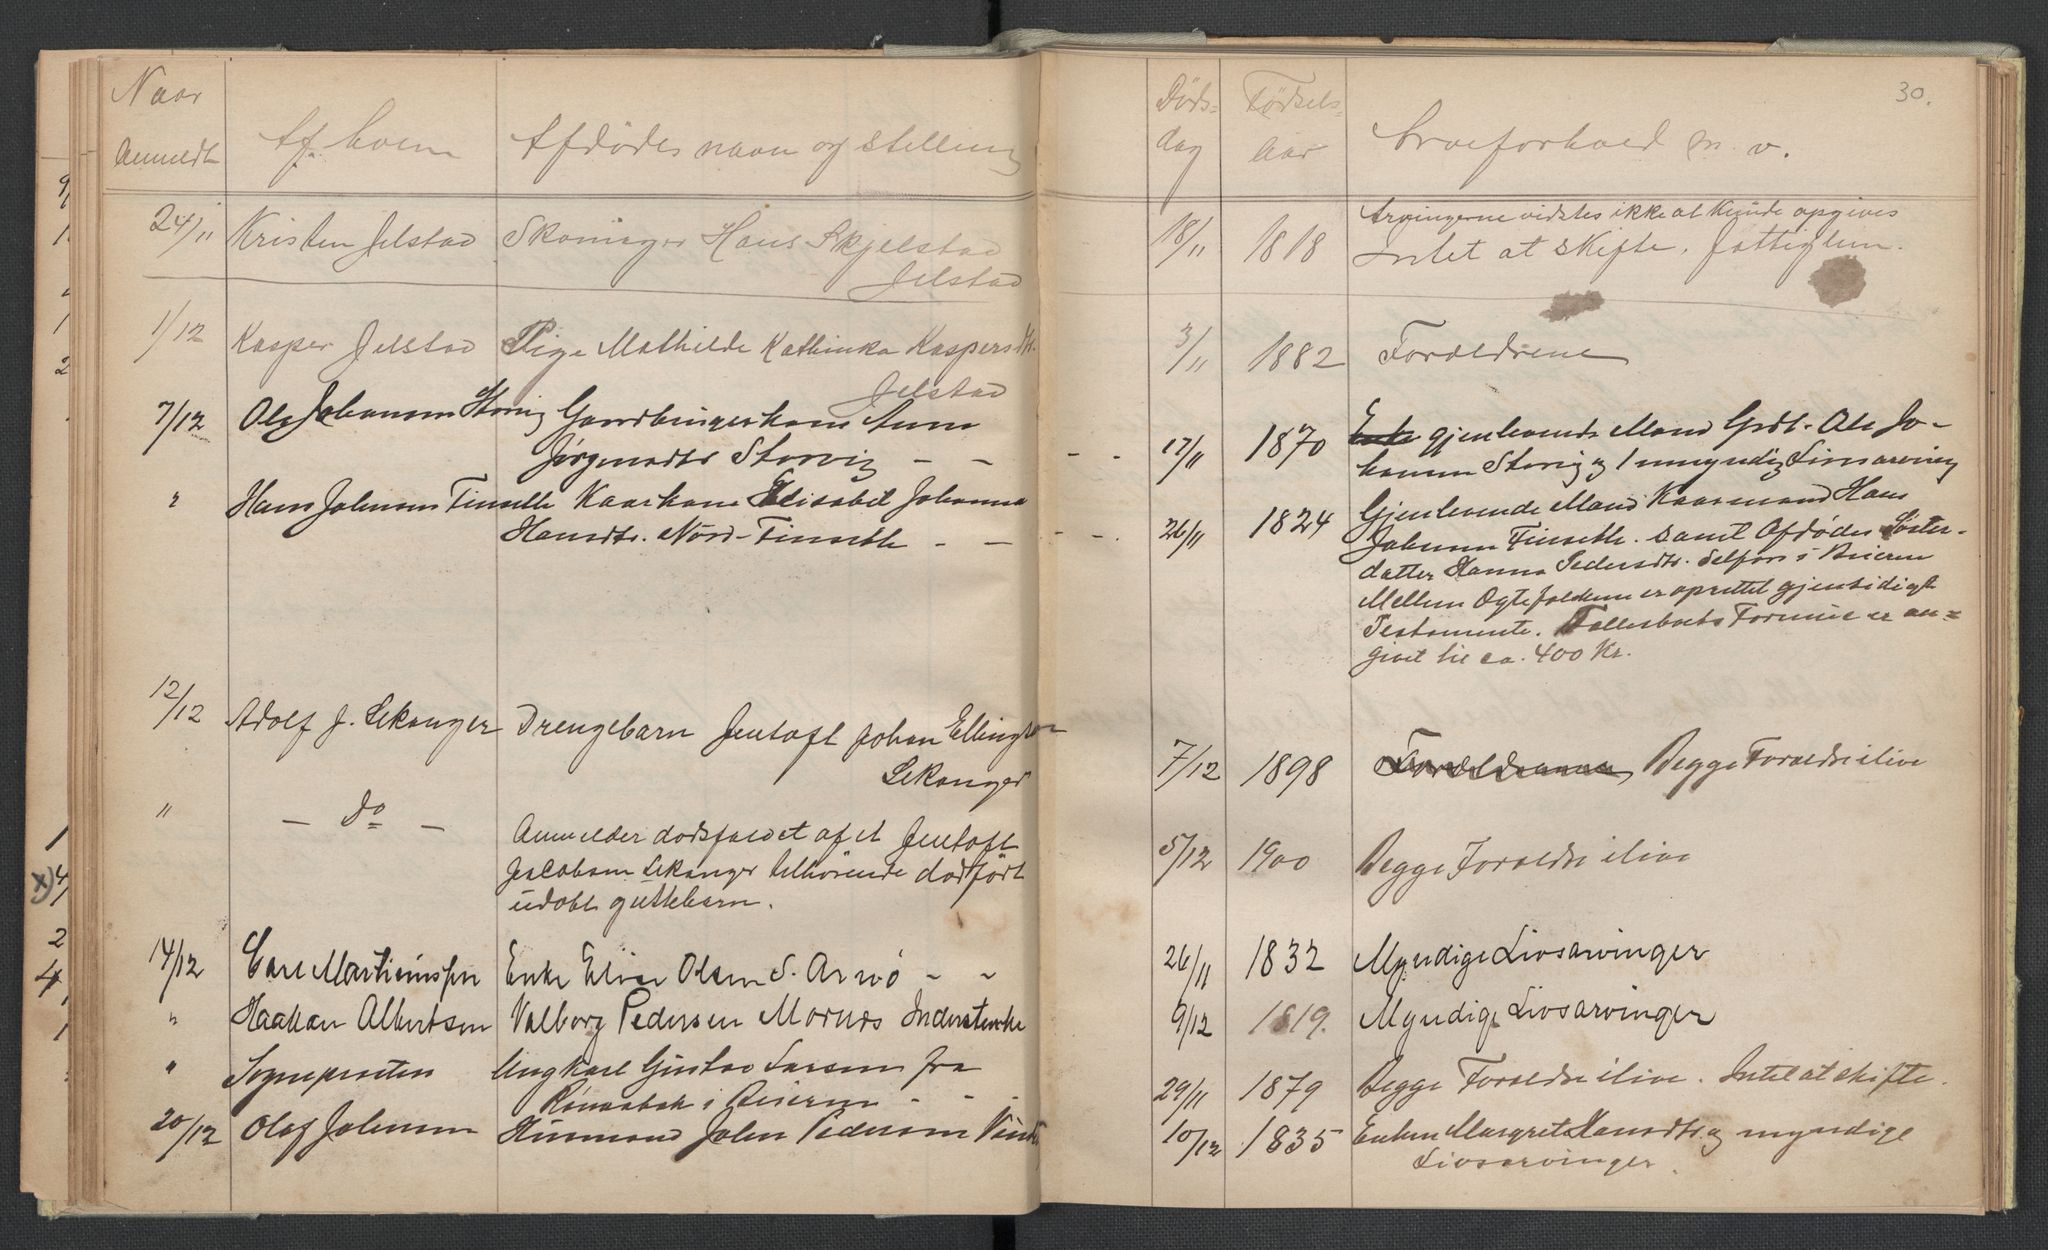 Naar Anmeldt
Af hvem
Afdødes navn og stilling
Døds-dag
Fødsels-aar
Arveforhold m. v.
30.
24/11 Kristen Jelstad Skomager Hans Skjelstad
Jelstad
18/11 1818 Arvingerne vidstes ikke at kunde opgives
Intet at skifte. Fattiglem.
1/12 Kasper Jelstad Pige Mathilde Kathinka Kaspersdtr.
Jelstad
3/11 1882 Forældrene
7/12 Ole Johansen Storvig Gaardbrugerkone Anna
Jørgensdtr Storvig - -
- - 17/11 1870 Enke gjenlevende Mand Grdb. Ole Jo-
hansen Storvig og 1 umyndig Livsarving
" Hans Johnsen Tinseth Kaarkone Elisabet Johanna
Hansdtr. Nord-Tinseth - -
- - 26/11 1824 Gjenlevende Mand Kaarmand Hans
Johnsen Finseth. samt Afdødes Søster-
datter Hanna Pedersdtr. Selfors i Beieren
Mellem Ægtefolkene er oprettet gjensidigt
Testamente. Fællesboets Formue er an-
givet til ca. 400 Kr.
12/12 Adolf J. Lekanger Drengebarn Jentoft Johan Ellingsen
Lekanger
7/12 1898 Forældrene, Begge Forældre ilive
" - do - Anmelder dødsfaldet af et Jentoft
Jacobsen Lekanger tilhørende dødfødt
udøbt guttebarn.
5/12 1900 Begge Forældre ilive
14/12 Carl Martinussen Enke Elise Olsen S. Arnø - -
26/11 1832 Myndige Livsarvinger
" Haakon Albertsen Valborg Pedersen Mornes Inderstenke
9/12 1819. Myndige Livsarvinger
" Sognepresten Ungkarl Gustav Larsen fra
i Beieren - - -
29/11 1879 Begge Forældre ilive. Intet at skifte.
20/12 Olaf Johnsen Husmand John Pedersen
10/12 1835 Enken Margrete Hansdtr. og myndige
Livsarvinger.